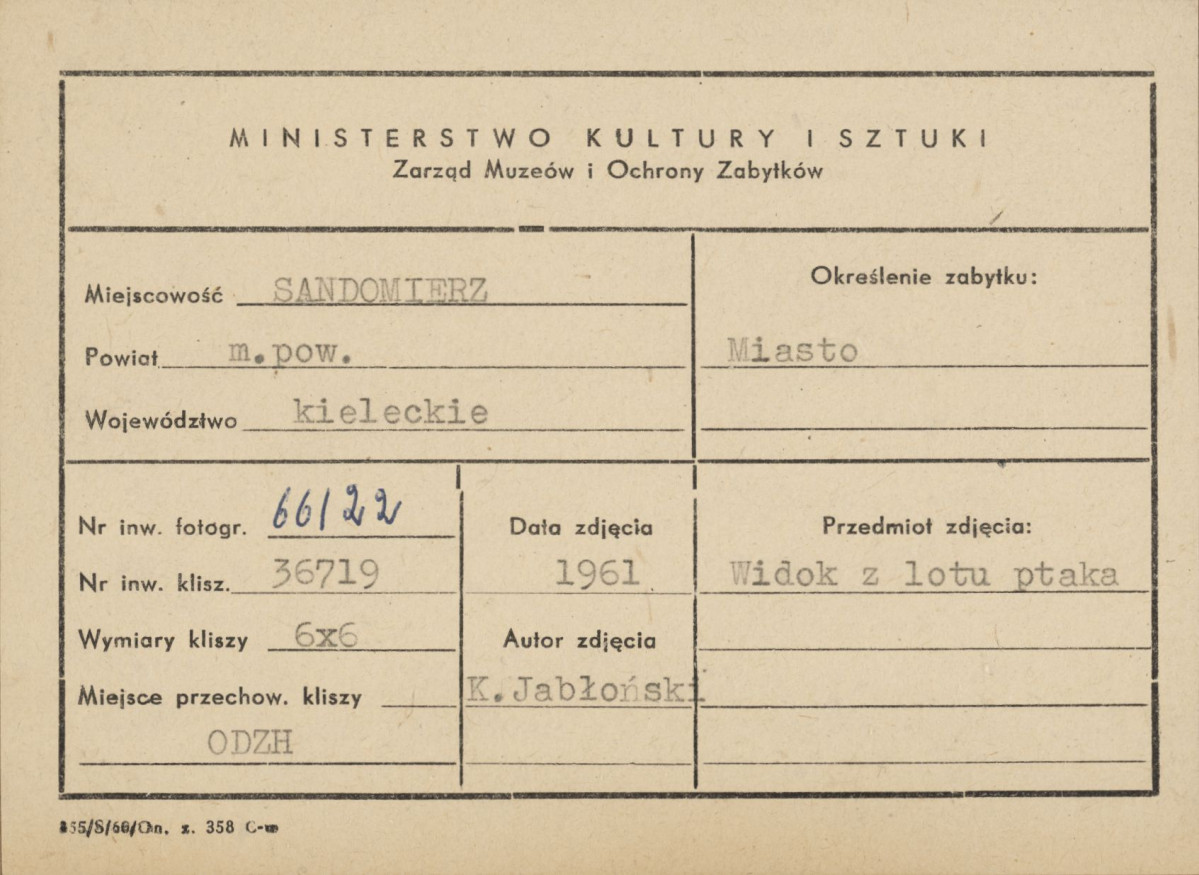 MINISTERSTWO KULTURY I SZTUKI
Zarząd Muzeów i Ochrony Zabytków
Miejscowość SANDOMIERZ
Powiat m.pow.
Województwo kieleckie
Określenie zabytku:
Miasto
Nr inw. fotogr. 66/22
Nr inw. klisz. 36719
Wymiary kliszy 6x6
Miejsce przechow. kliszy
ODZH
Data zdjęcia
1961
Autor zdjęcia
K.Jabłoński
Przedmiot zdjęcia:
Widok z lotu ptaka
z. 358